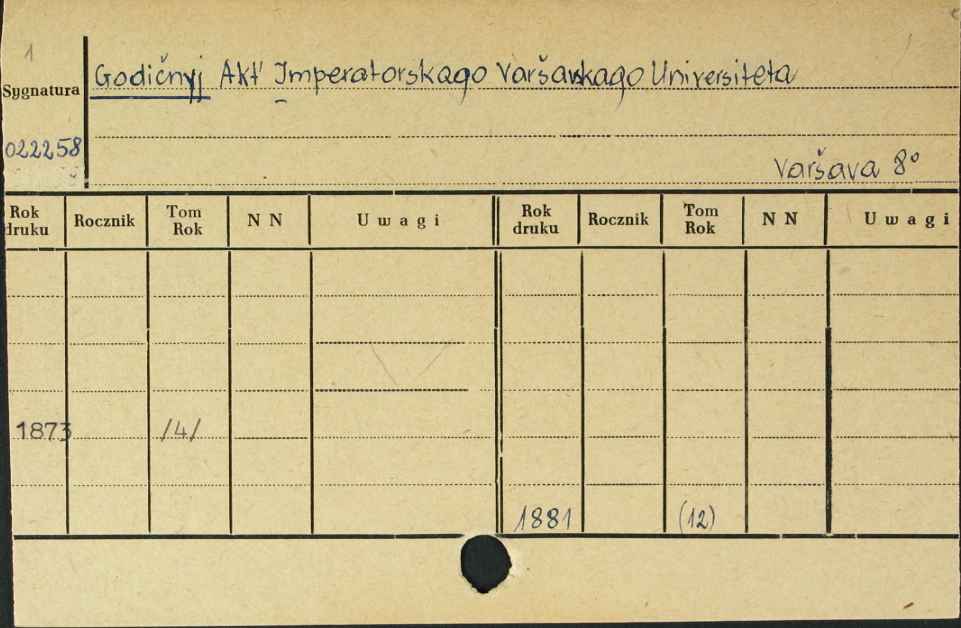 1
Godičnyj Akt" Imperatorskago Varšavskago Universiteta
Sygnatura
022258
Varšava 8°
Rok druku Rocznik Tom Rok N N Uwagi Rok druku Rocznik Tom Rok N N Uwagi
1873 /4/
1881 (12)